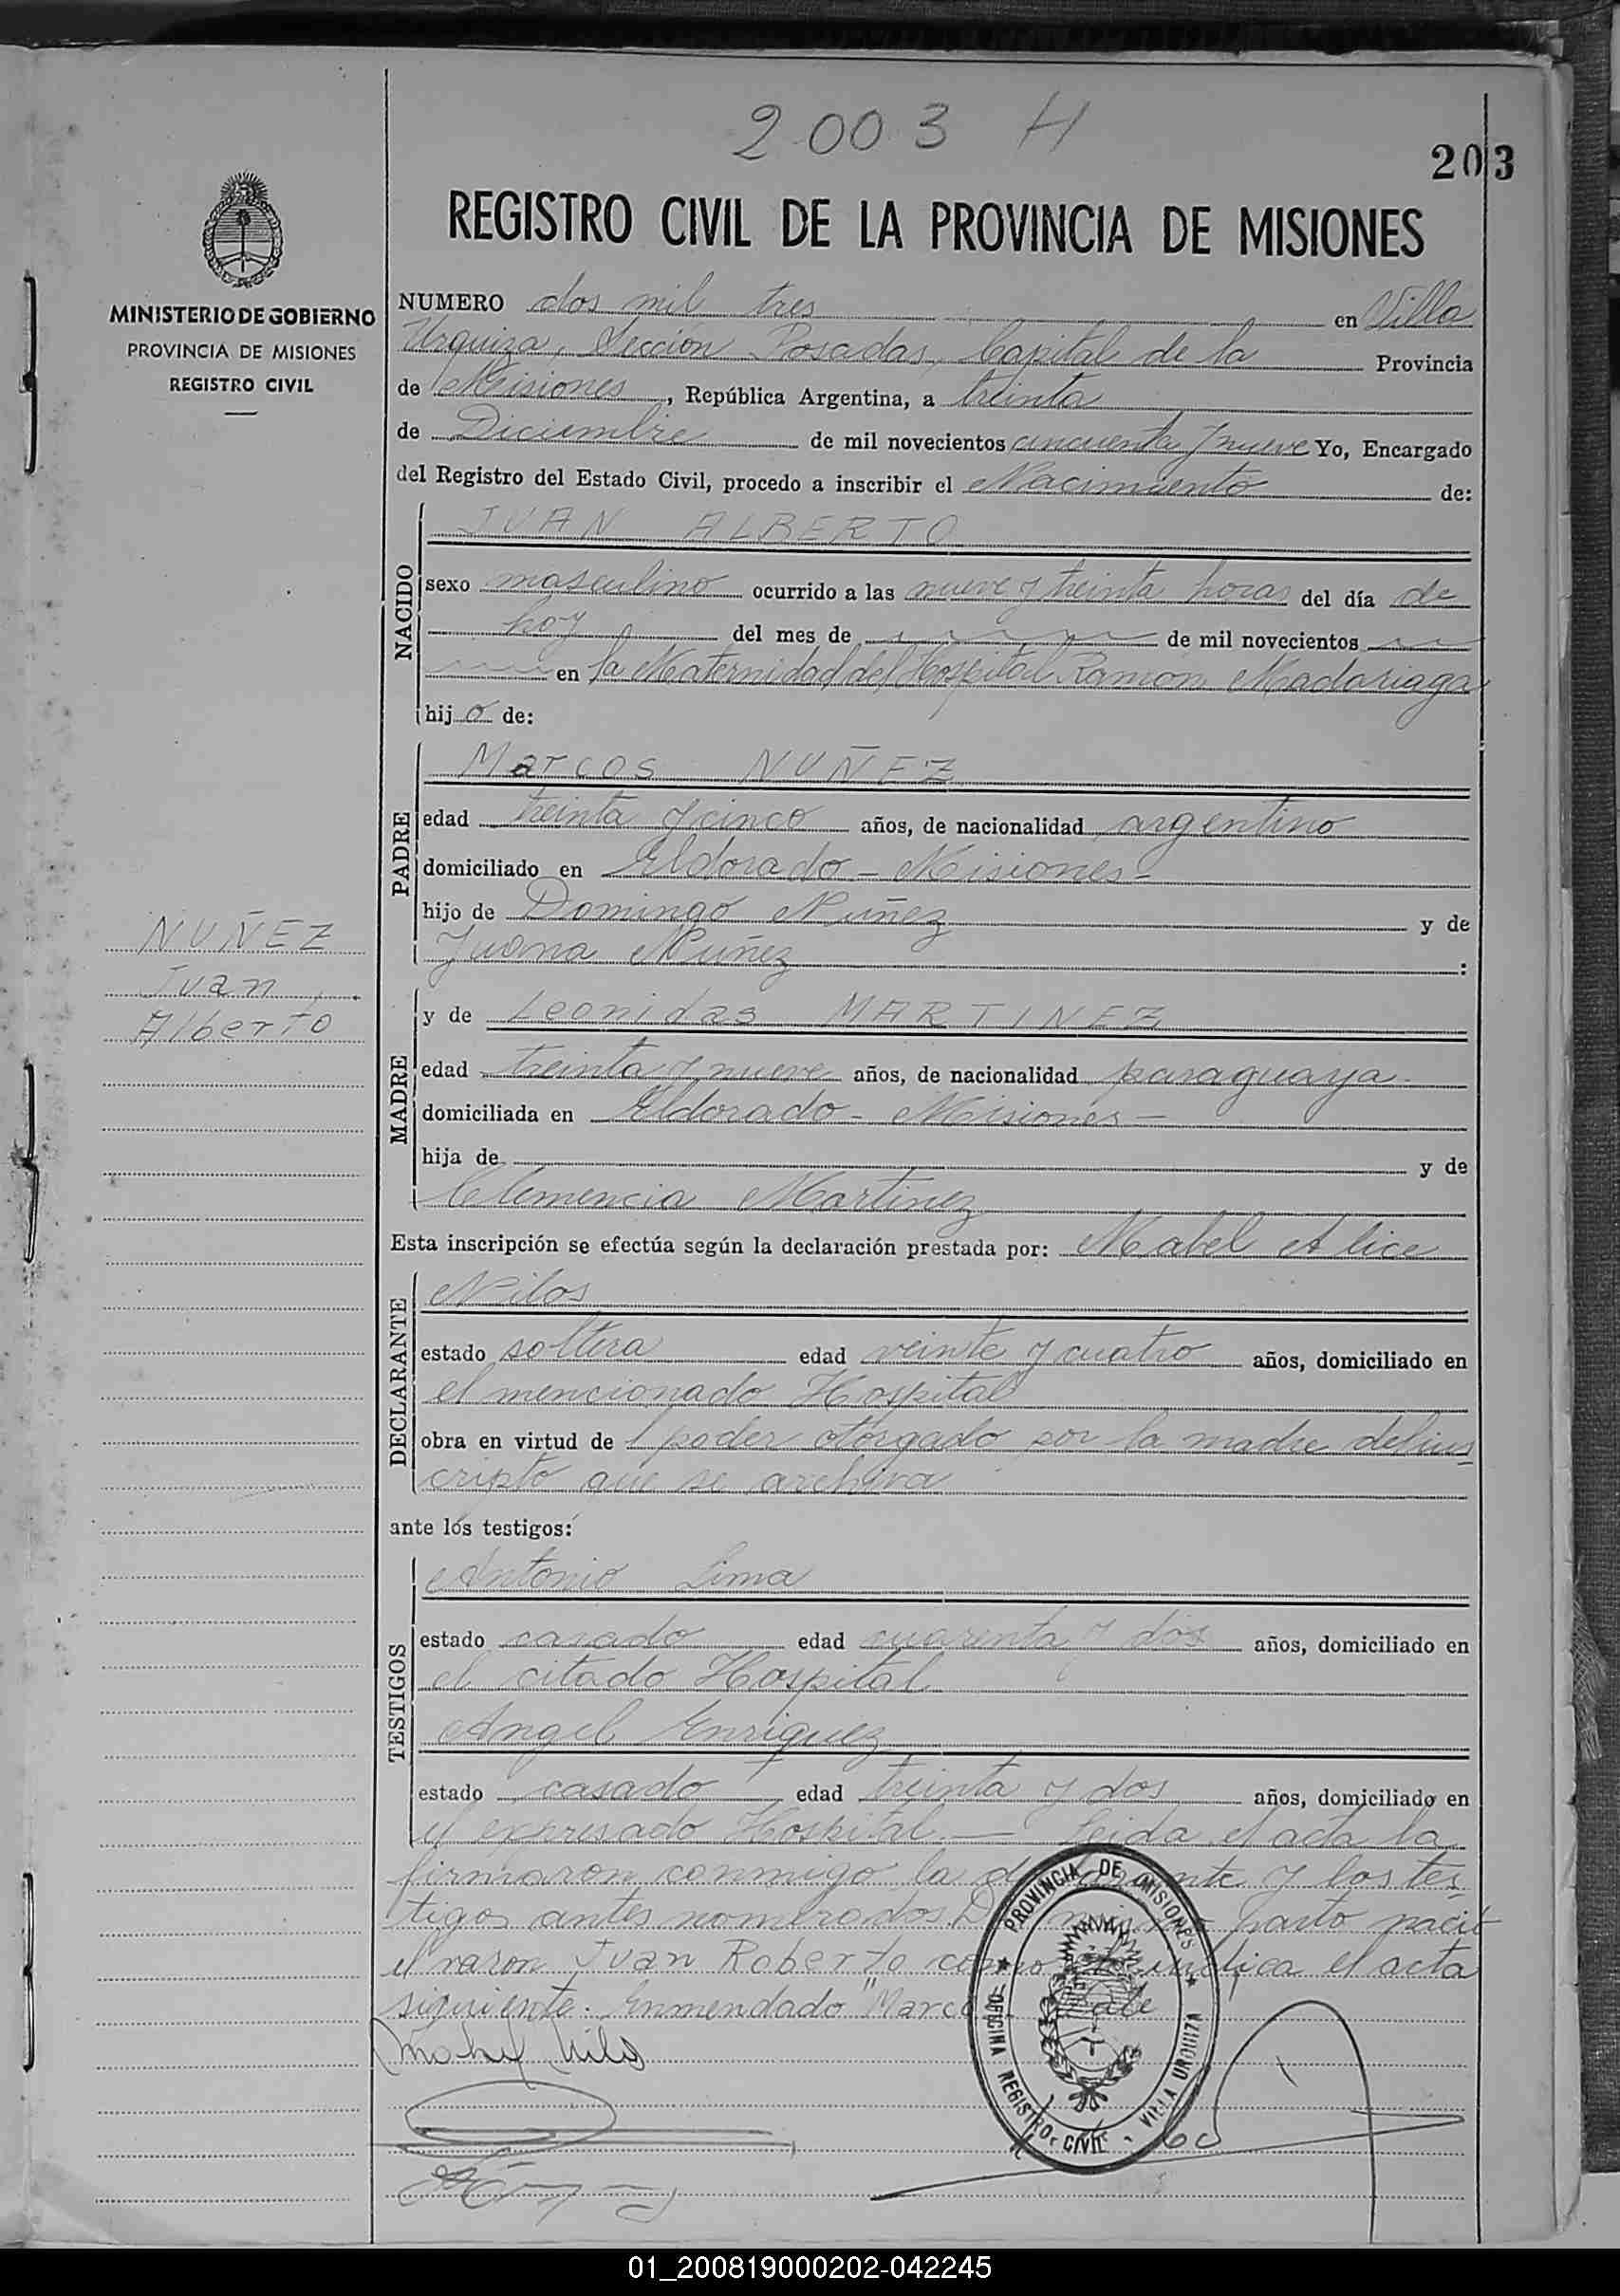 2003 H
203
REGISTRO CIVIL DE LA PROVINCIA DE MISIONES
MINISTERIO DE GOBIERNO
PROVINCIA DE MISIONES
REGISTRO CIVIL
NUMERO dos mil tres en Villa
Urquiza, Sección Posadas, Capital de la Provincia
de Misiones, República Argentina, a treinta
de Diciembre de mil novecientos cincuenta y nueve Yo, Encargado
del Registro del Estado Civil, procedo a inscribir el Nacimiento de:
NACIDO
JUAN ALBERTO
sexo masculino ocurrido a las nueve y treinta horas del día de
hoy del mes de de mil novecientos
en la Maternidad del Hospital Ramón Madariaga
hijo de:
PADRE
Marcos NUÑEZ
edad treinta y cinco años, de nacionalidad argentino
domiciliado en Eldorado - Misiones -
hijo de Domingo Nuñez y de
Juana Nuñez :
NUÑEZ
Juan
Alberto
MADRE
y de Leonidas MARTINEZ
edad treinta y nueve años, de nacionalidad paraguaya -
domiciliada en Eldorado - Misiones -
hija de y de
Clemencia Martinez
Esta inscripción se efectúa según la declaración prestada por: Mabel Alice
DECLARANTE
Nilos
estado soltera edad veinte y cuatro años, domiciliado en
el mencionado Hospital
obra en virtud de l poder otorgado por la madre del ins
cripto que se archiva
ante los testigos:
TESTIGOS
Antonio Lima
estado casado edad cuarenta y dos años, domiciliado en
el citado Hospital
Angel Enriquez
estado casado edad treinta y dos años, domiciliado en
el expresado Hospital. — Leida el acta la
firmaron conmigo la y los tes
tigos antes nombrados. parto nació
el varon Juan Roberto como indica el acta
siguiente. Enmendado "Marcos" Vale
PROVINCIA DE MISIONES
OFICINA REGISTRO CIVIL - VILLA URQUIZA
01_200819000202-042245